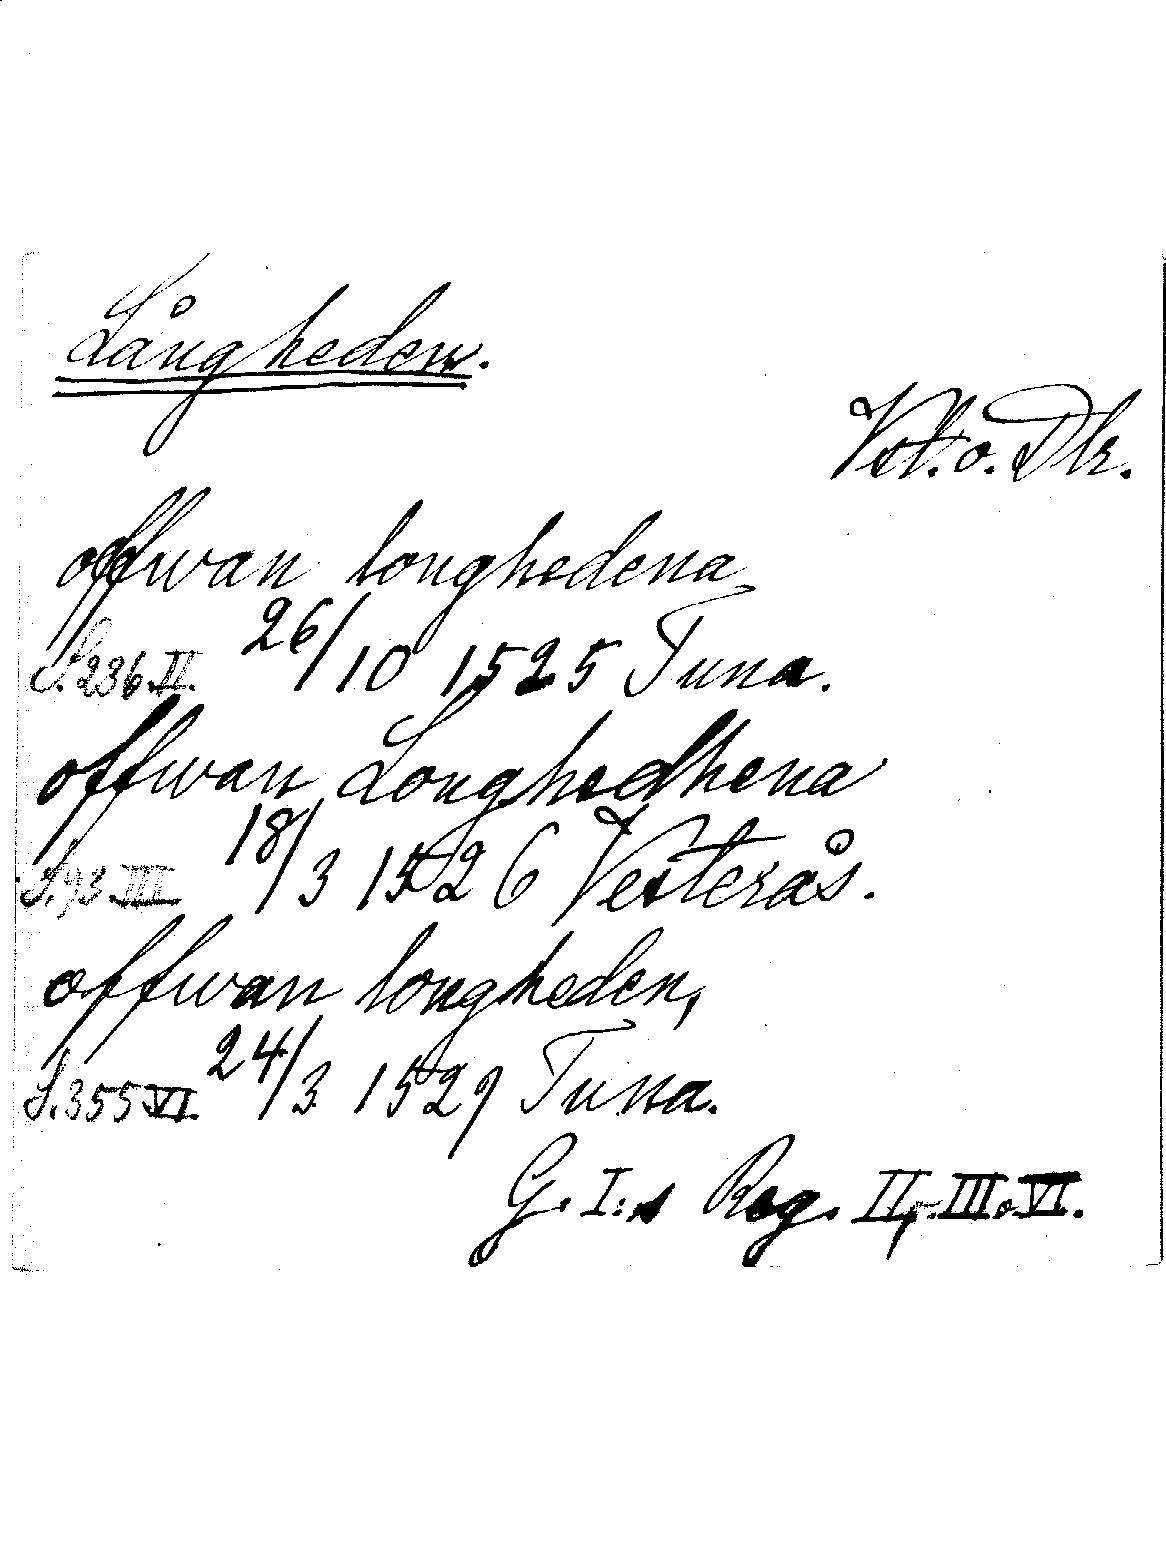 Långheden.
Vstl. o. Dlr.
offwan longhedena
S. 236. II. 26/10 1525 Tuna.
offwan Longhedhena
S. 93 III 18/3 1526 Vesterås.
offwan longheden,
S. 355 VI. 24/3 1529 Tuna.
G. I:s Reg. II, III o. VI.